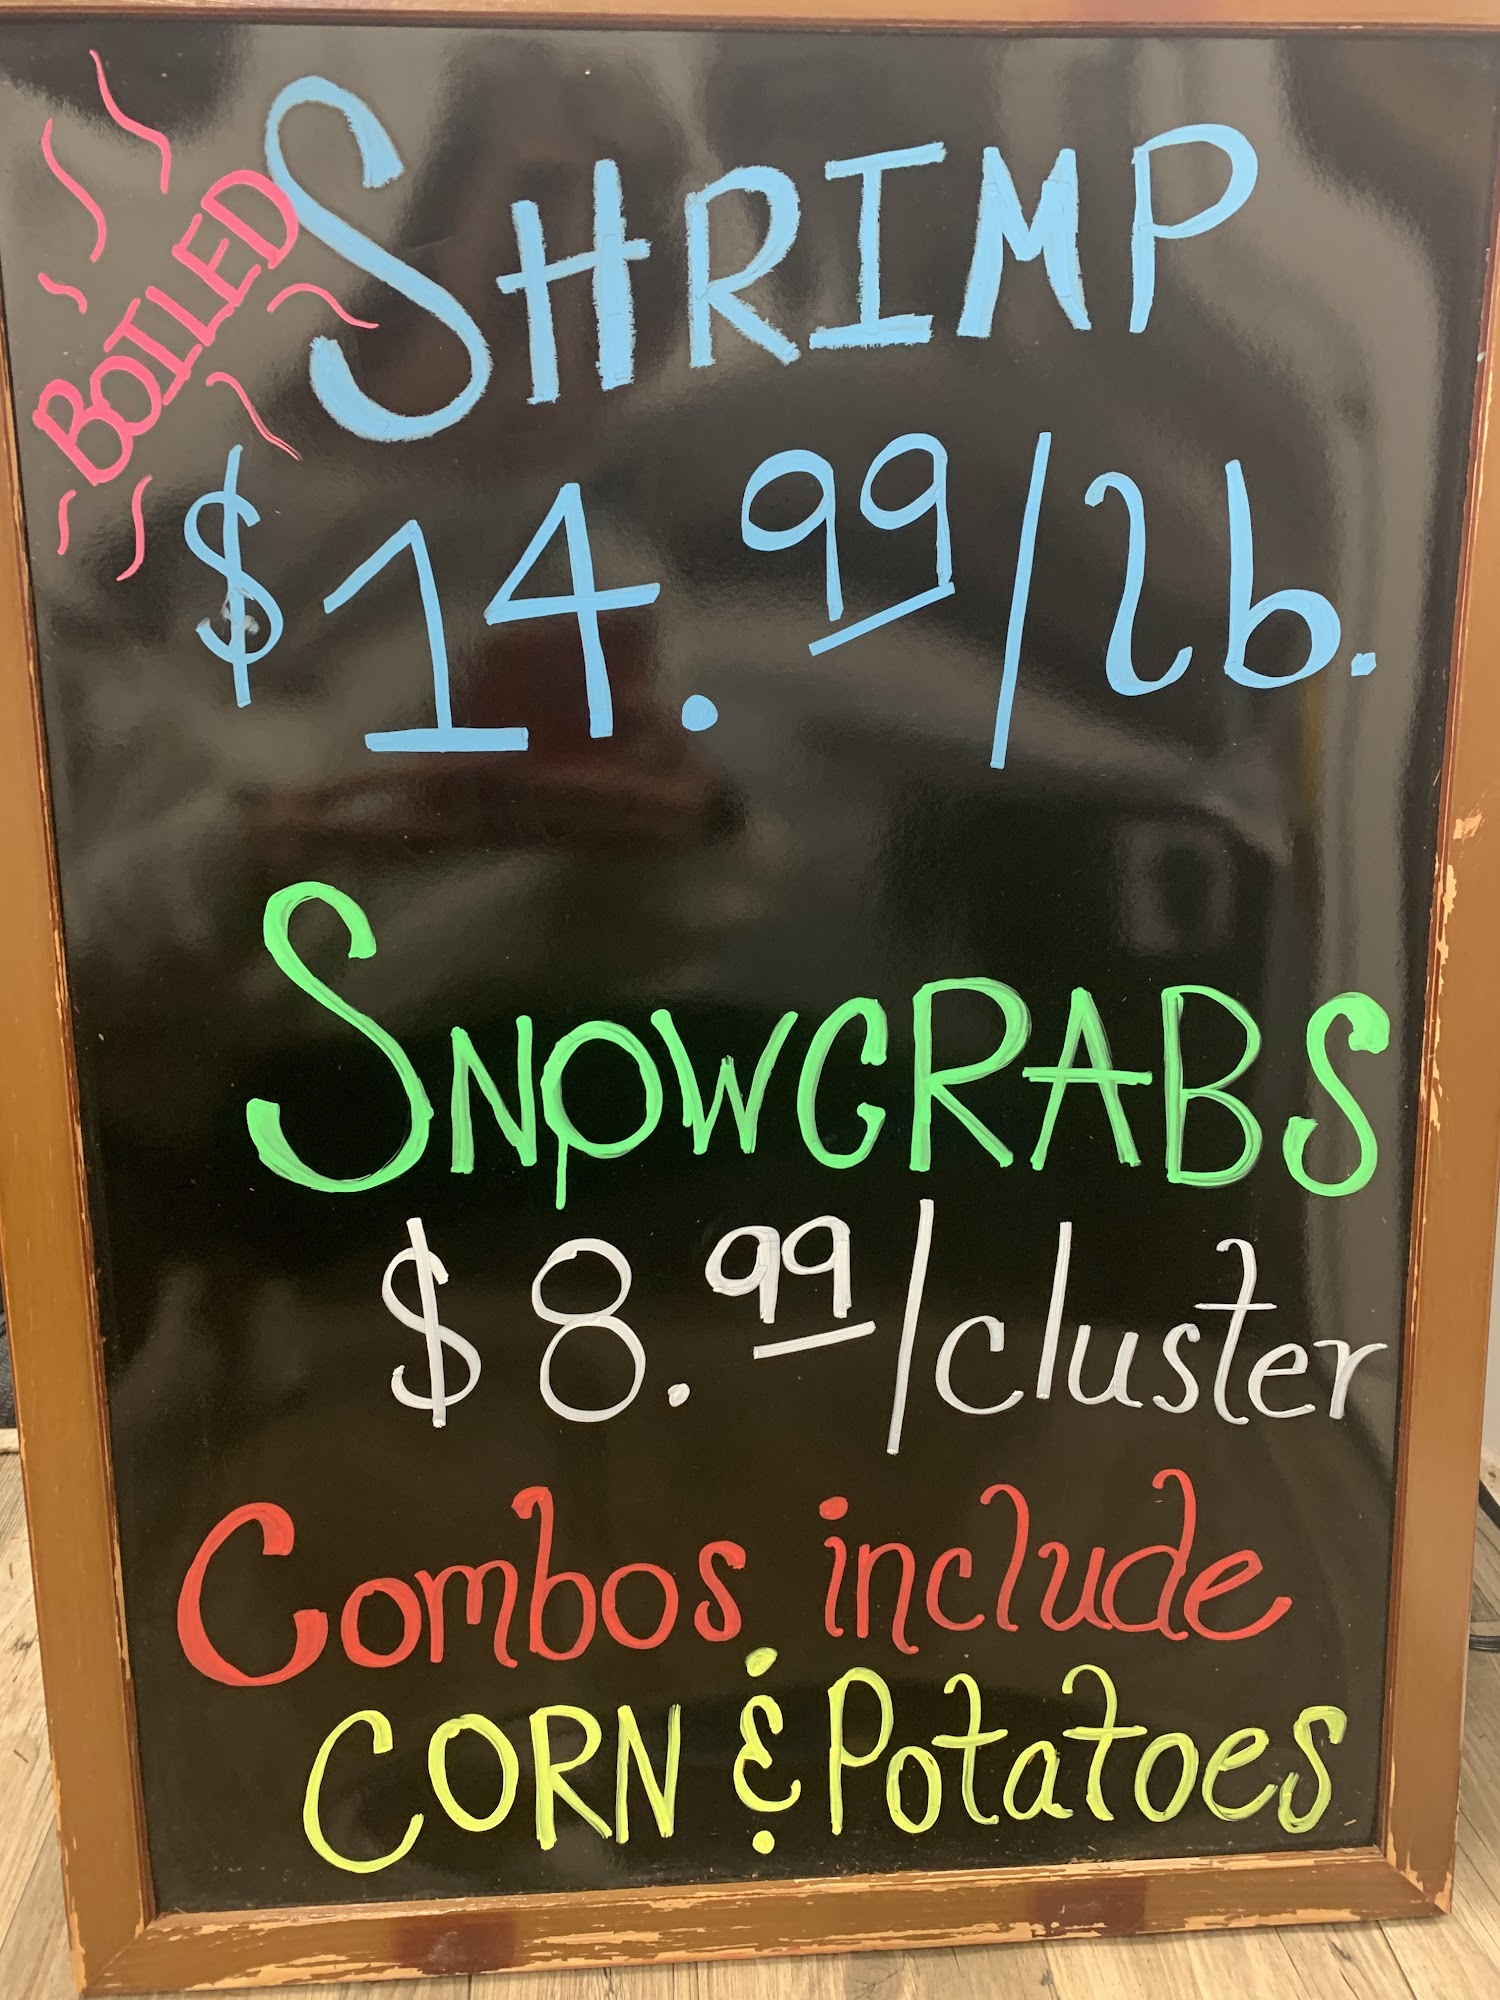 BOILED
SHRIMP
$14.99/lb.
SNOWCRABS
$8.99/cluster
Combos include
CORN & Potatoes